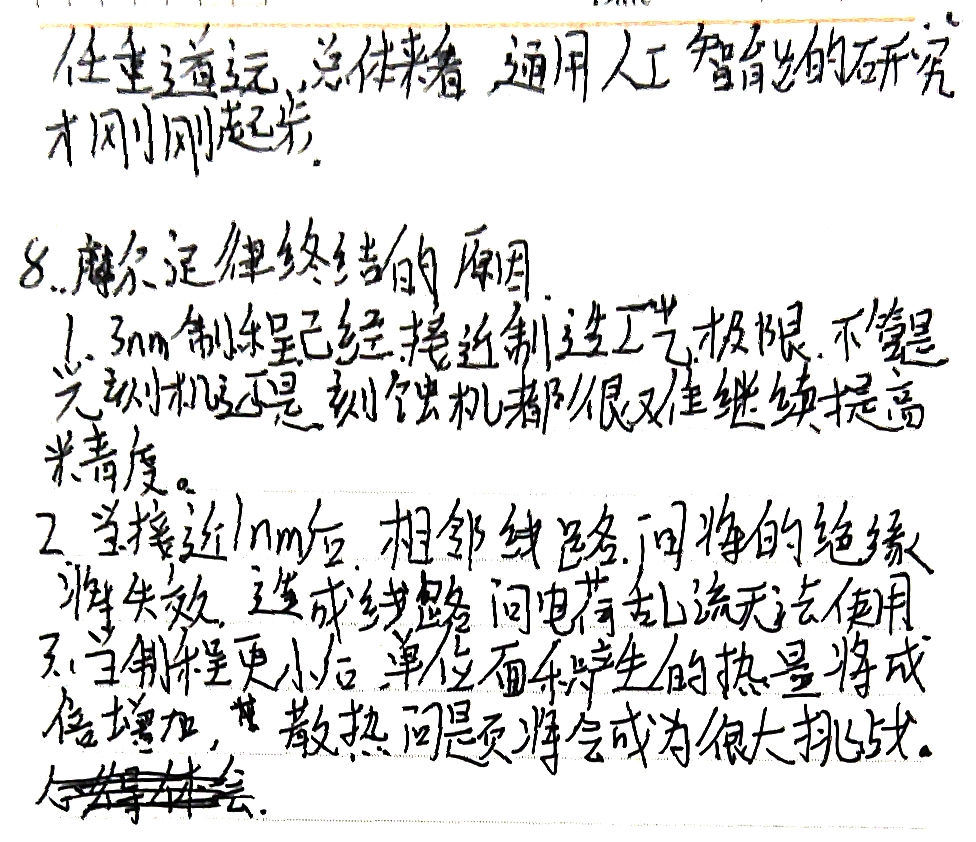 任重道远,总体来看 通用人工智能的研究
才刚刚起步.
8. 摩尔定律终结的原因.
1. 3nm制程已经接近制造工艺极限.不管是
光刻机还是刻蚀机都很难继续提高
精度。
2.当接近1nm后.相邻线路间将的绝缘
将失效,造成线路间电荷乱流无法使用
3.当制程更小后 单位面积产生的热量将成
倍增加,其散热问题将会成为很大挑战。
心得体会.